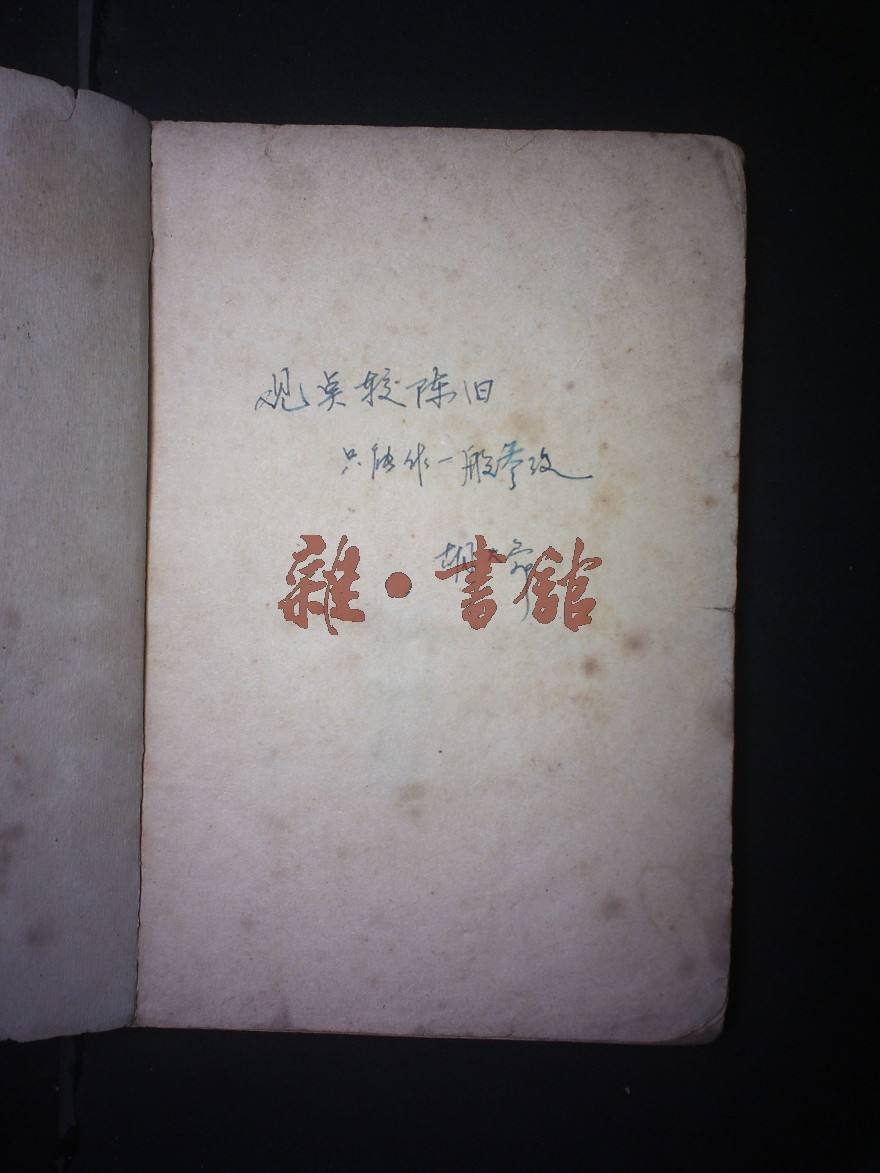 观点较陈旧
只能作一般参考
胡
雜·書館